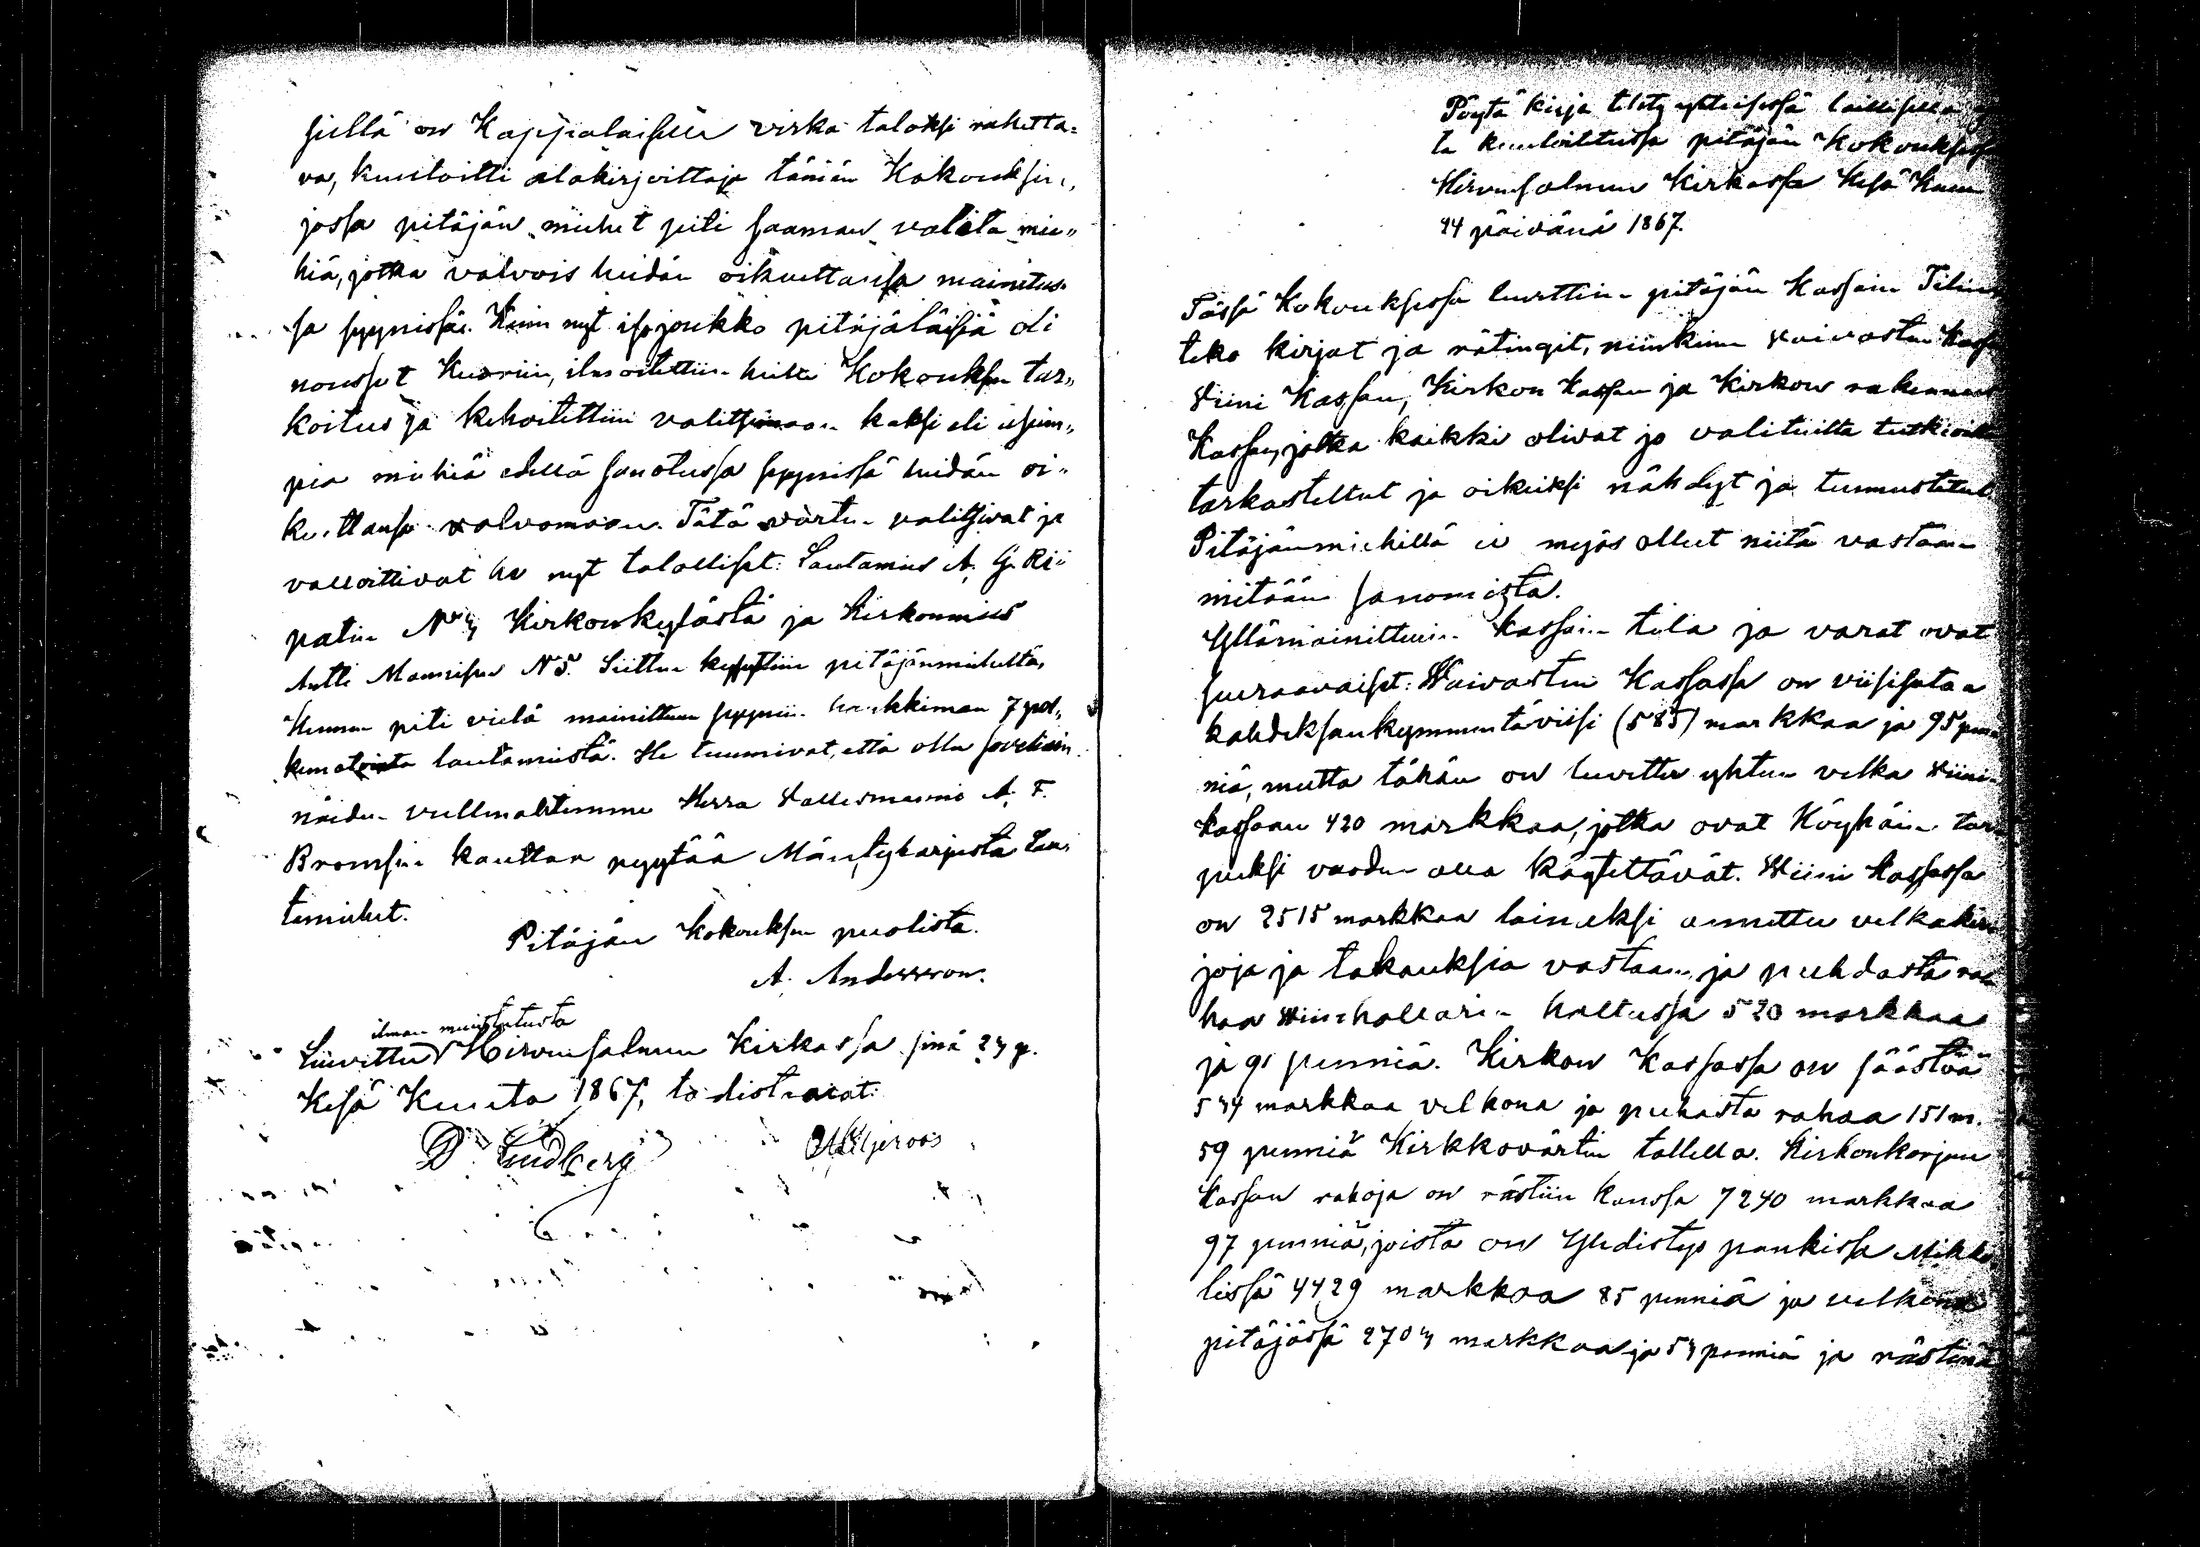 sellä on Kappalaisella virka taloksi raketta-
va, kuuloitti alakirjoittaja tämän Kokouksen,
jossa pitäjän miehet piti saaman valita mie„
hiä, jotka valvois heidän oikeuttansa mainitus„
sa syynissä. Kuin nyt iso joukko pitäjäläisiä oli
nousset Kuoriin, ilmoitettiin heille Kokouksen tar„
koitus ja kehoitettiin valitsemaan kaksi eli usium„
pia miehiä edellä sanotussa syynissä heidän oi„
keuttansa valvomaan. Tätä varten valitsivat ja
valtoittivat he nyt talolliset: Lautamies A. G. Rii
patin N 4 Kirkonkylästä ja Kirkonmies
Antti Mannisen N 5. Siitten kysyttiin pitäjänmieheltä,
Kunnan piti vielä mainittuun syyniin hankkiman 7 pol„
kunatointa lautamiestä. He tuumivat, että olla soveliain
näiden vallmahtimme Herra Vallesmanni A. F.
Bromsen kauttan pyytää Mäntyharjusta Lau„
tamiehet.
Pitäjän Kokouksen puolista.
A. Andersson.
ilman muistutusta
Luvittu Hirvensalmen Kirkossa sinä 24 p.
Kesä Kuuta 1867, todistavat:
D Lindberg
Liljeroos
Pöytä kirja tehty yhteisessä laillisella
ta kuuloitetussa pitäjän Kokouksessa
Hirvensalmen Kirkossa Kesä Kuun
44 päivänä 1867.
Tässä Kokouksessa luvettiin pitäjän Kassain Tilin
teko kirjat ja rätingit, niinkuin Vaivasten Kassan
Viini Kassan, Kirkon Kassan ja Kirkon rakennus
Kassan, jotka kaikki olivat jo valituilta tutkitut
tarkasteltut ja oikeiksi nähdyt ja tunnustetut.
Pitäjänmiehillä ei myös ollut niitä vastaan
mitään sanomista.
Yllämainittuin Kassain tila ja varat ovat
seuraavaiset: Waivasten Kassassa on viisisataa
kahdeksankymmentäviisi (585) markkaa ja 95 pen
niä, mutta tähän on luvettu yhteen velka Viini
kassaan 420 markkaa, jotka ovat Köyhäin tar
peeksi vuoden alla käytettävät. Wiini Kassassa
on 2515 markkaa lainaksi annettu velkakir
joja ja takauksia vastaan, ja puhdasta ra
haa Viinihallarin haltussa 520 markkaa
ja 91 penniä. Kirkon Kassassa on säästöä
544 markkaa velkona ja puhasta rahaa 151 m.
59 penniä Kirkkovärtin tallella. Kirkonkorjun
Kassan rahoja on rästiin kanssa 7240 markkaa
97 penniä, joista on Yhdistys pankissa Mikke
lissä 4429 markkaa 85 penniä ja velkona
pitäjässä 2704 markkaa ja 54 penniä ja rästinä